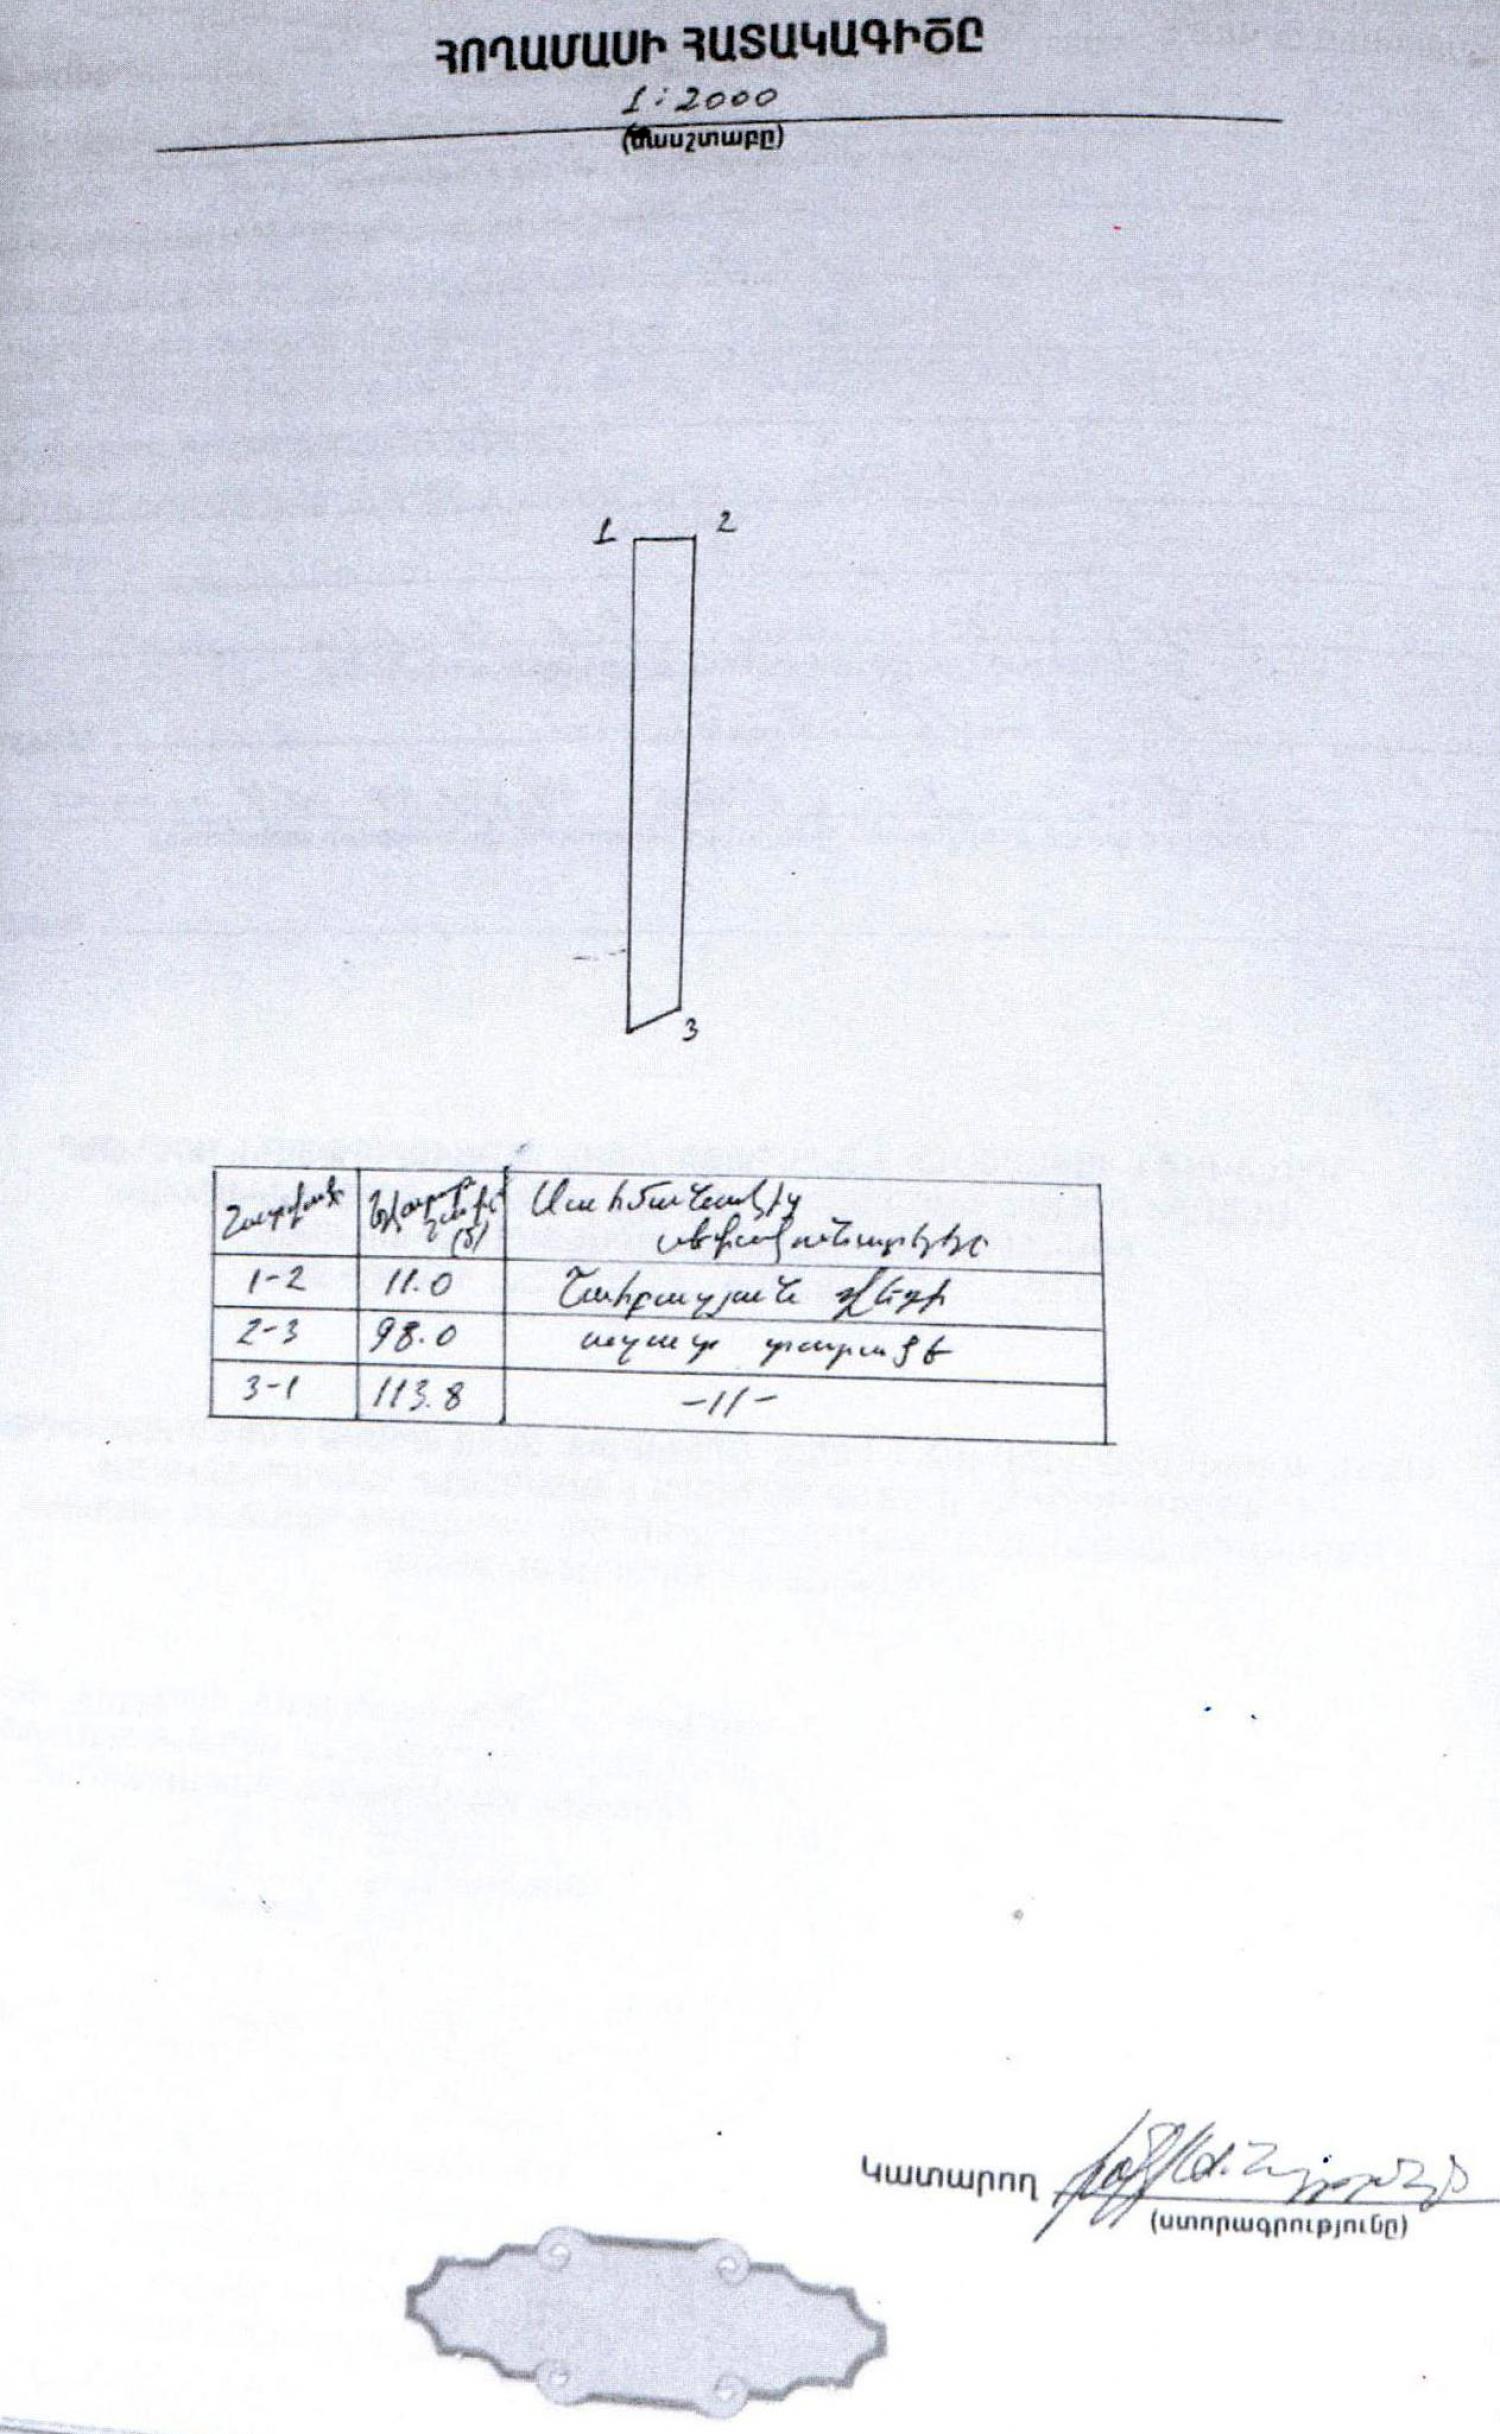 ՀՈՂԱՄԱՍԻ ՀԱՏԱԿԱԳԻԾԸ
1:2000
(մասշտաբը)
1 2
3
Սահմանակից
սեփականատերերը
1-2 11.0
2-3 98.0 ազատ տարածք
3-1 113.8 -//-
Կատարող
(ստորագրությունը)